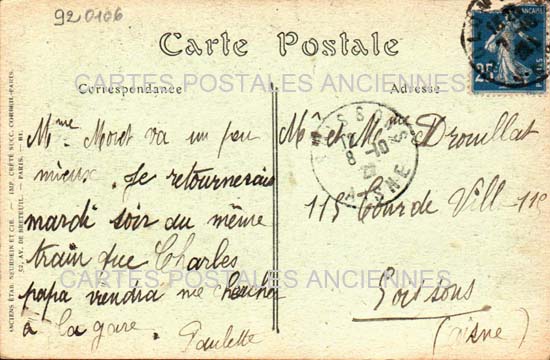 920106
Carte Postale
CARTES POSTALES ANCIENNES
Correspondance
Adresse
Mme Morot va un peu
mieux. Je retournerai
mardi soir du même
train que Charles
papa viendra me chercher
à la gare. Paulette
Mr et Mme Drouillat
115 Cour de Vill 115
Soissons
(Aisne)
CARTES POSTALES ANCIENNES
SOISSONS
8-10
AISNE
25c
ANCIENS ÉTAB. NEURDEIN ET CIE. — IMP. CRÉTÉ SUCC. CORBEIL-PARIS.
52, AV. DE BRETEUIL. — PARIS.